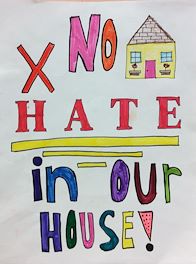 X NO
HATE
in our
HOUSE!